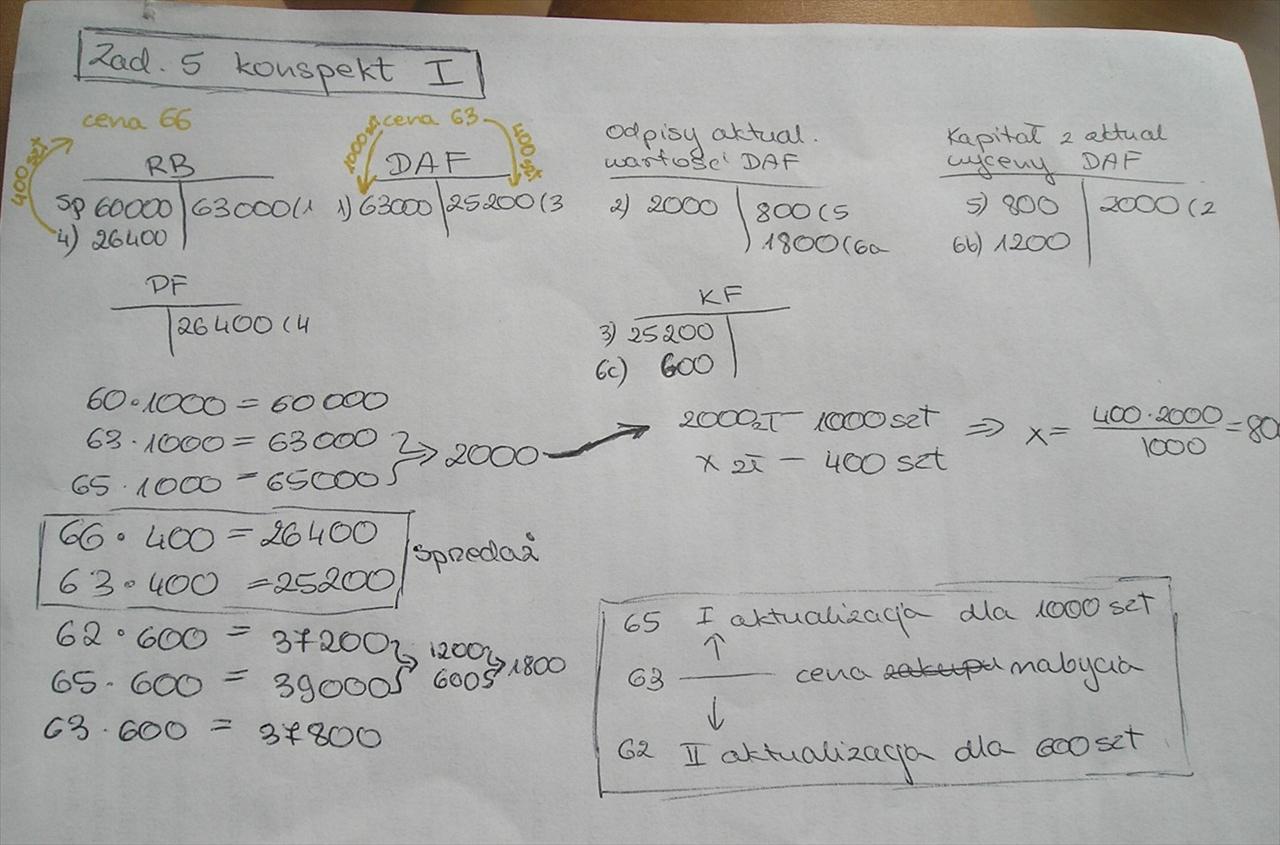 Zad. 5 konspekt I
cena 66
cena 63
400 szt
1000szt
400 szt
RB
Sp 60000 | 63000 (1
4) 26400
DAF
1) 63000 | 25200 (3
Odpisy aktual.
wartości DAF
2) 2000 | 800 (5
1800 (6a
Kapitał z aktual
wyceny DAF
5) 800 | 2000 (2
6b) 1200
PF
26400 (4
KF
3) 25200
6c) 600
60 · 1000 = 60000
63 · 1000 = 63000
65 · 1000 = 65000
⇒ 2000
2000 zł – 1000 szt
x zł – 400 szt
⇒ x = 400 · 2000 / 1000 = 80
66 · 400 = 26400
63 · 400 = 25200
sprzedaż
62 · 600 = 37200
65 · 600 = 39000
63 · 600 = 37800
1200
600
1800
65 I aktualizacja dla 1000 szt
↑
63 — cena zakupu nabycia
↓
62 II aktualizacja dla 600 szt